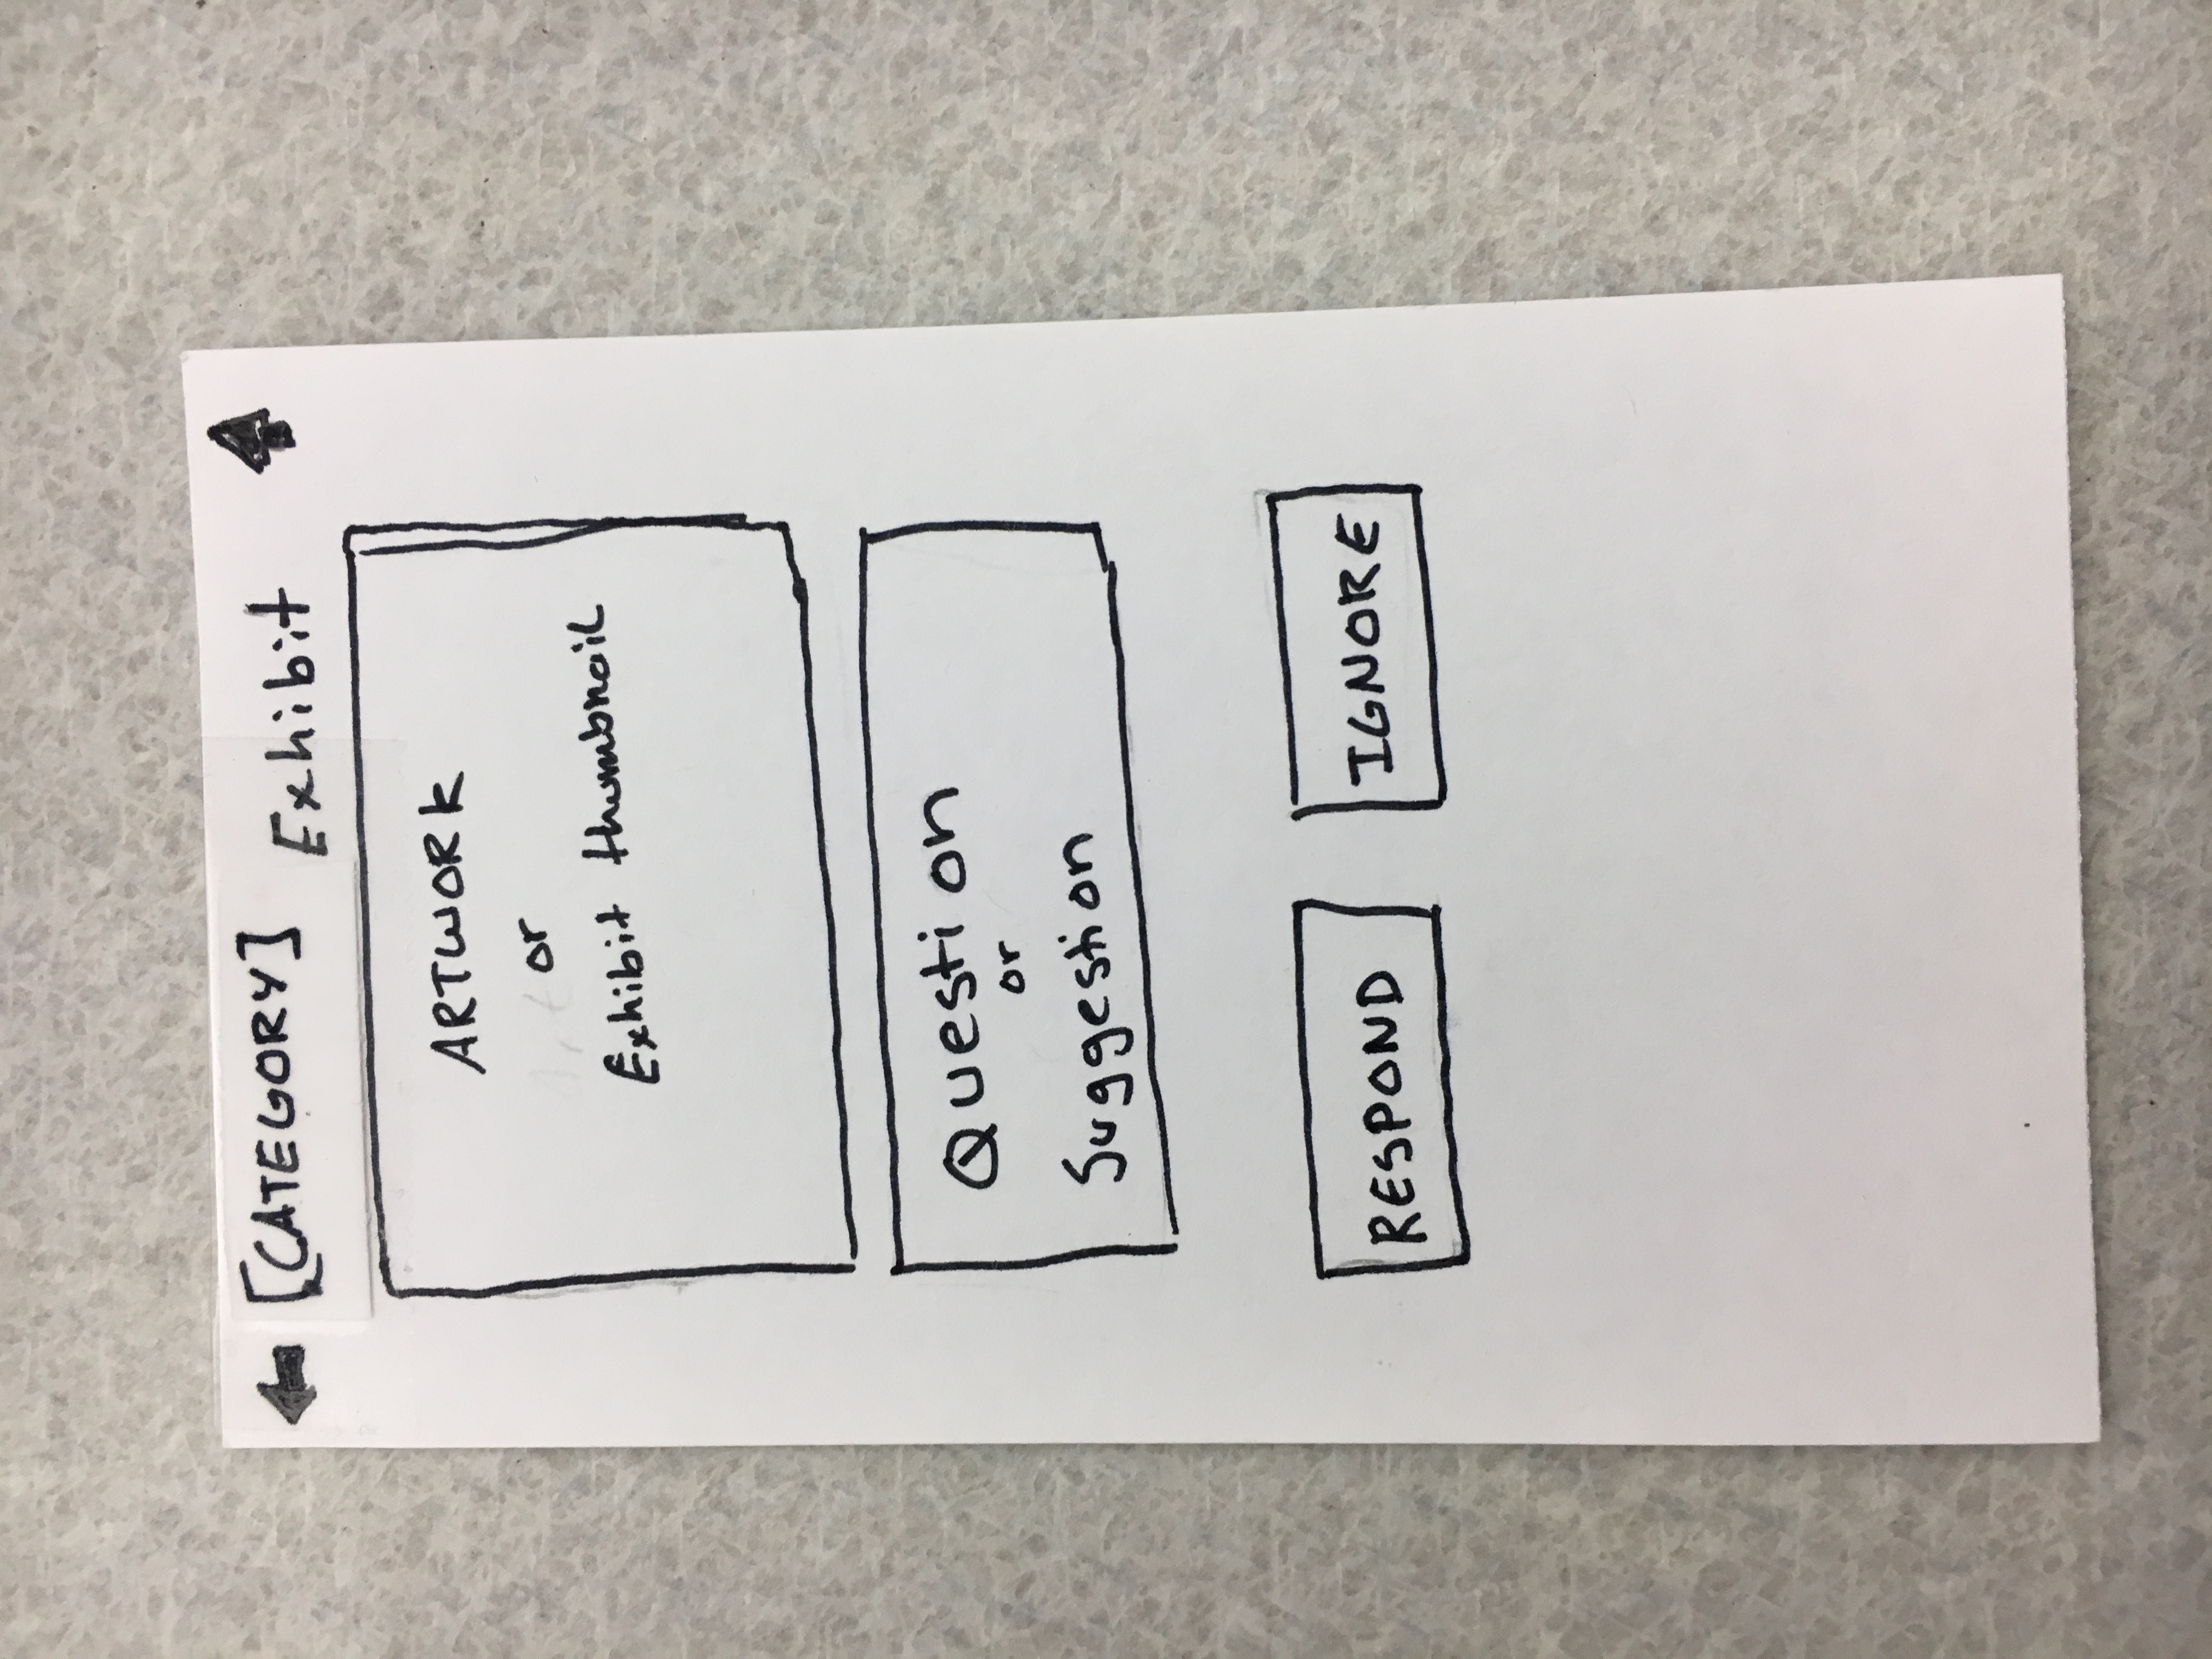 [CATEGORY] Exhibit
ARTWORK
or
Exhibit thumbnail
Question
or
Suggestion
RESPOND IGNORE